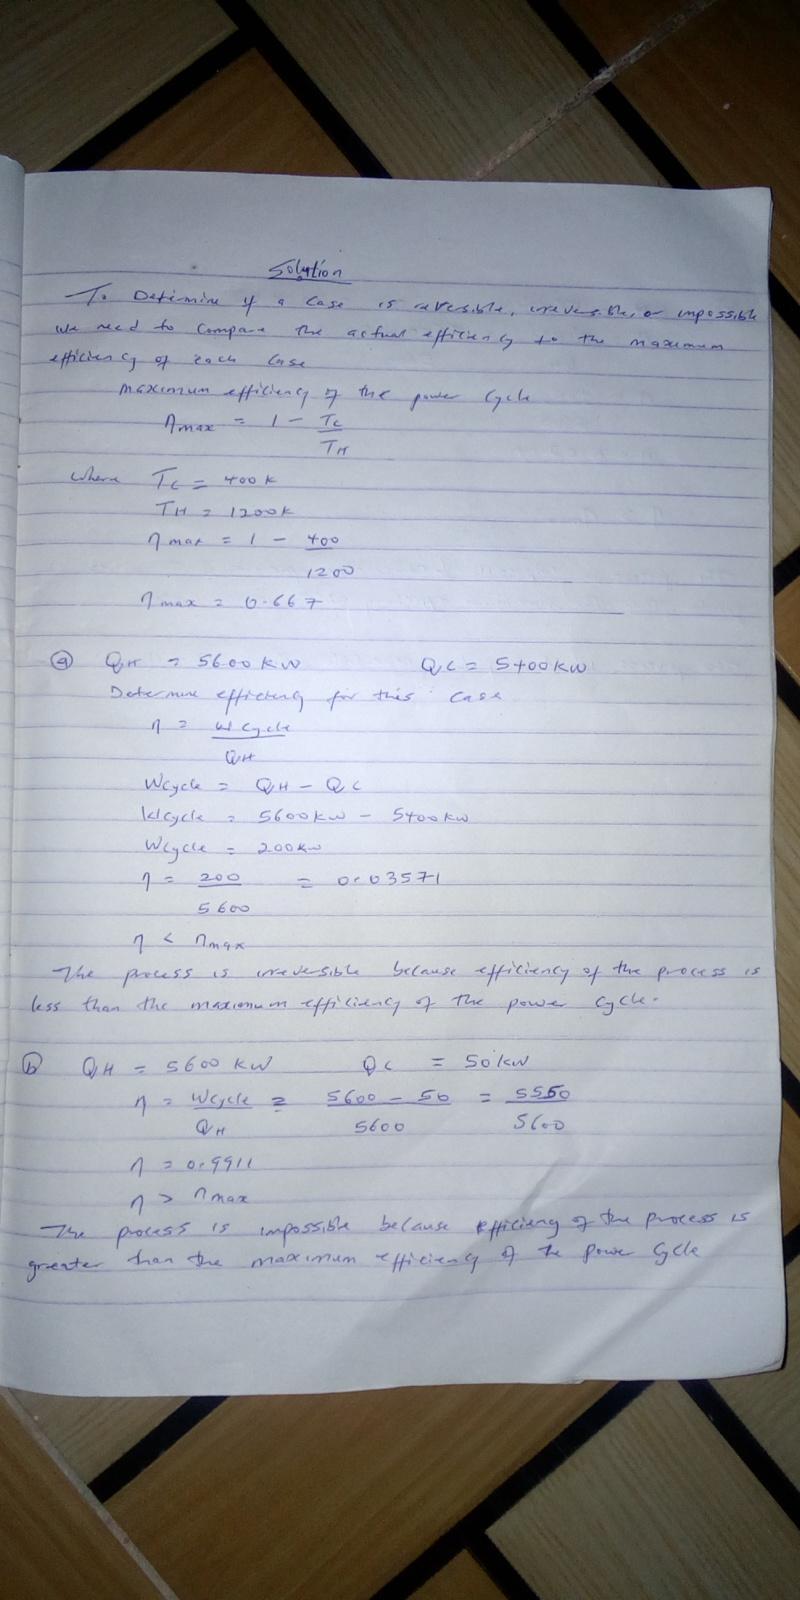 Solution
To Determine if a case is reversible, irreversible, or impossible
we need to compare the actual efficiency to the maximum
efficiency of each case
maximum efficiency of the power cycle
ηmax = 1 - Tc
TH
where Tc = 400K
TH = 1200K
ηmax = 1 - 400
1200
ηmax = 0.667
(a) QH = 5600kW QC = 5400kW
Determine efficiency for this case
η = Wcycle
QH
Wcycle = QH - QC
Wcycle = 5600kW - 5400kW
Wcycle = 200kW
η = 200 = 0.03571
5600
η < ηmax
The process is irreversible because efficiency of the process is
less than the maximum efficiency of the power cycle.
(b) QH = 5600 kW QC = 50kW
η = Wcycle = 5600 - 50 = 5550
QH 5600 5600
η = 0.9911
η > ηmax
The process is impossible because efficiency of the process is
greater than the maximum efficiency of the power cycle